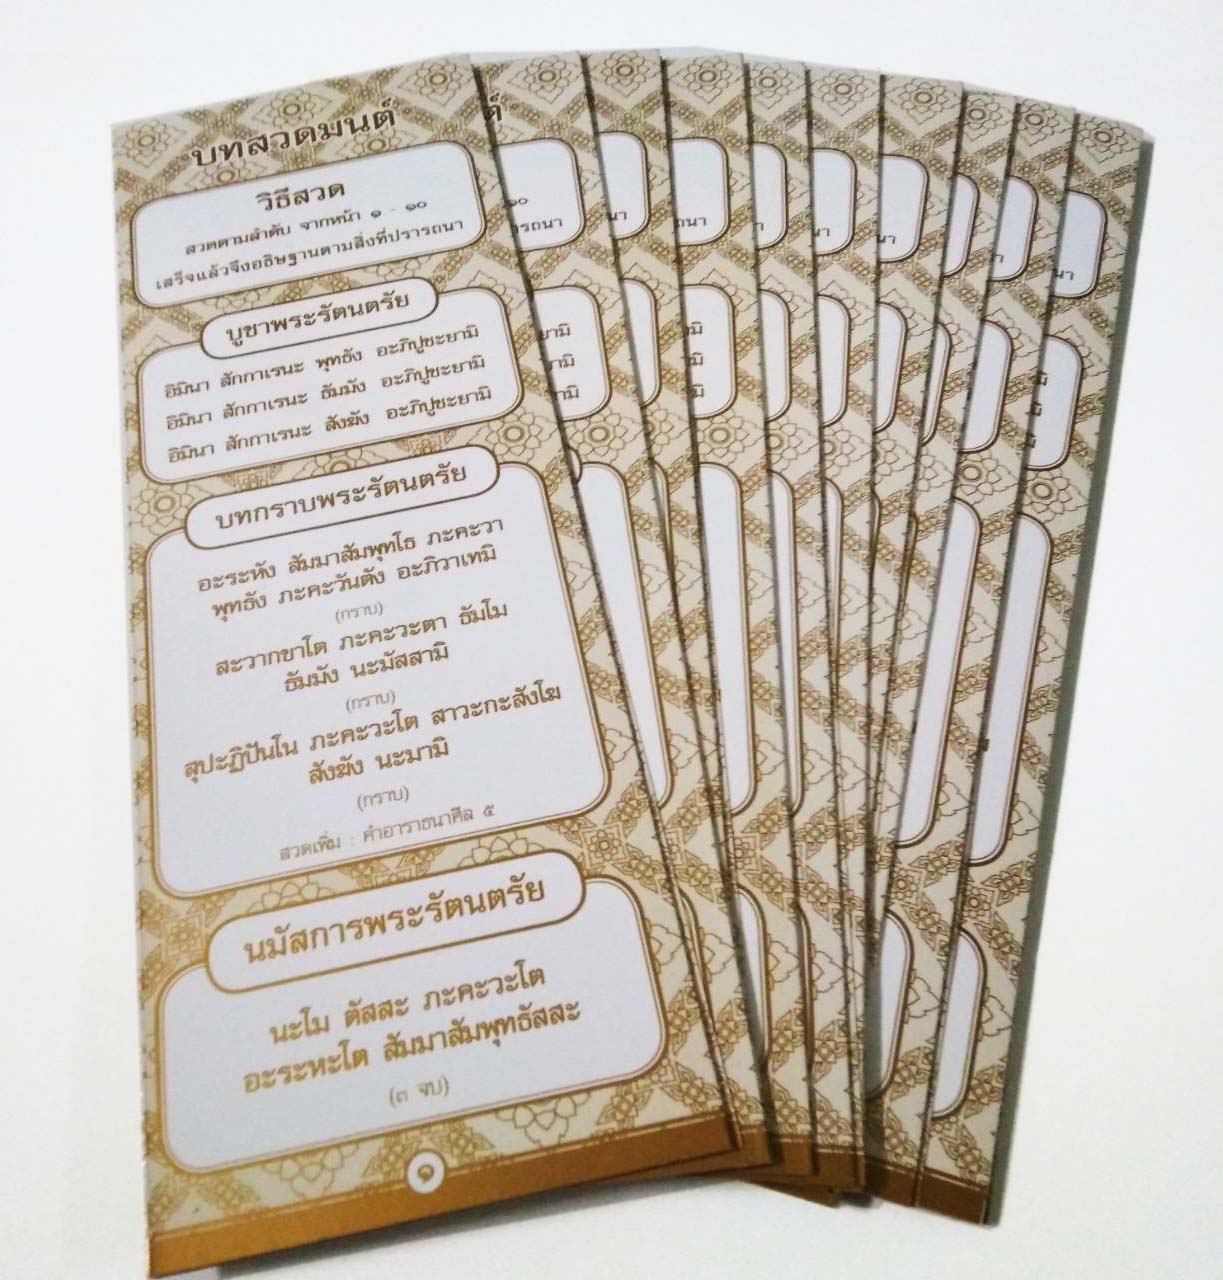 บทสวดมนต์
วิธีสวด
สวดตามลำดับ จากหน้า ๑ - ๑๐
เสร็จแล้วจึงอธิษฐานตามสิ่งที่ปรารถนา
บูชาพระรัตนตรัย
อิมินา สักกาเรนะ พุทธัง อะภิปูชะยามิ
อิมินา สักกาเรนะ ธัมมัง อะภิปูชะยามิ
อิมินา สักกาเรนะ สังฆัง อะภิปูชะยามิ
บทกราบพระรัตนตรัย
อะระหัง สัมมาสัมพุทโธ ภะคะวา
พุทธัง ภะคะวันตัง อะภิวาเทมิ
(กราบ)
สะวากขาโต ภะคะวะตา ธัมโม
ธัมมัง นะมัสสามิ
(กราบ)
สุปะฏิปันโน ภะคะวะโต สาวะกะสังโฆ
สังฆัง นะมามิ
(กราบ)
สวดเพิ่ม : คำอาราธนาศีล ๕
นมัสการพระรัตนตรัย
นะโม ตัสสะ ภะคะวะโต
อะระหะโต สัมมาสัมพุทธัสสะ
(๓ จบ)
๑